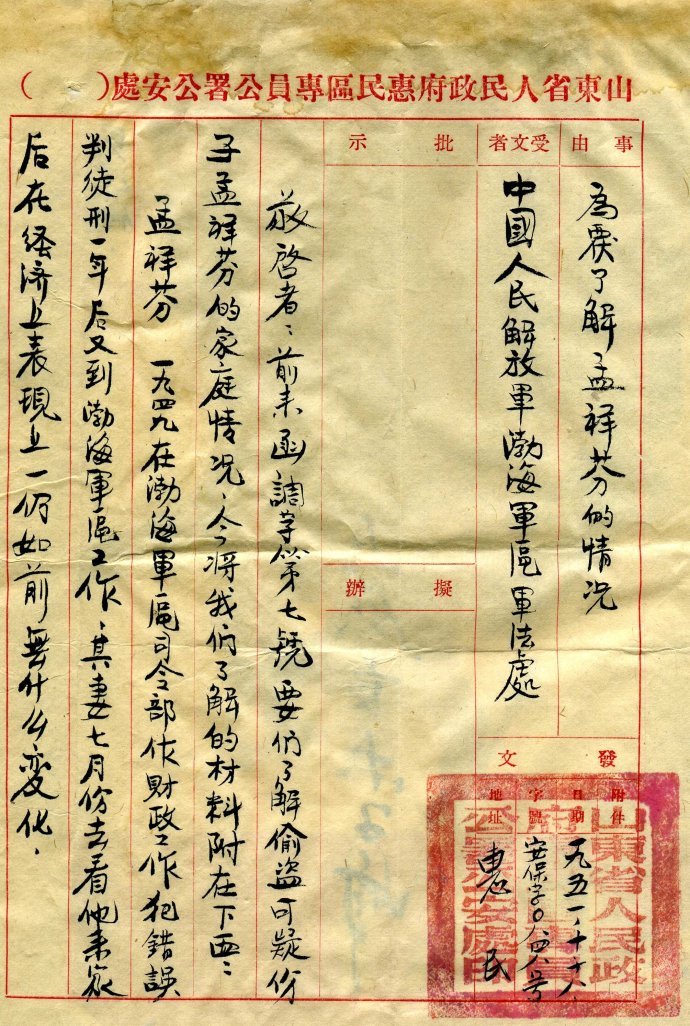 山東省人民政府惠民區專員公署公安處（　　）
事由
為覆了解孟祥芬的情况
受文者
中國人民解放軍渤海軍區軍法處
批示
擬辦
發文
附件
日期
一九五一、十、十八、
字號
安保字〇
號
地址
惠民
山東省人民政府惠民區專員公署公安處印
敬啓者：前来函調字第七號要们了解偷盗可疑份
子孟祥芬的家庭情况，今将我们了解的材料附在下面：
孟祥芬　一九四九在渤海軍區司令部作財政工作犯錯誤
判徒刑一年后又到渤海軍區工作，其妻七月份去看他来家
后在経济上表現上一仍如前無什么変化．